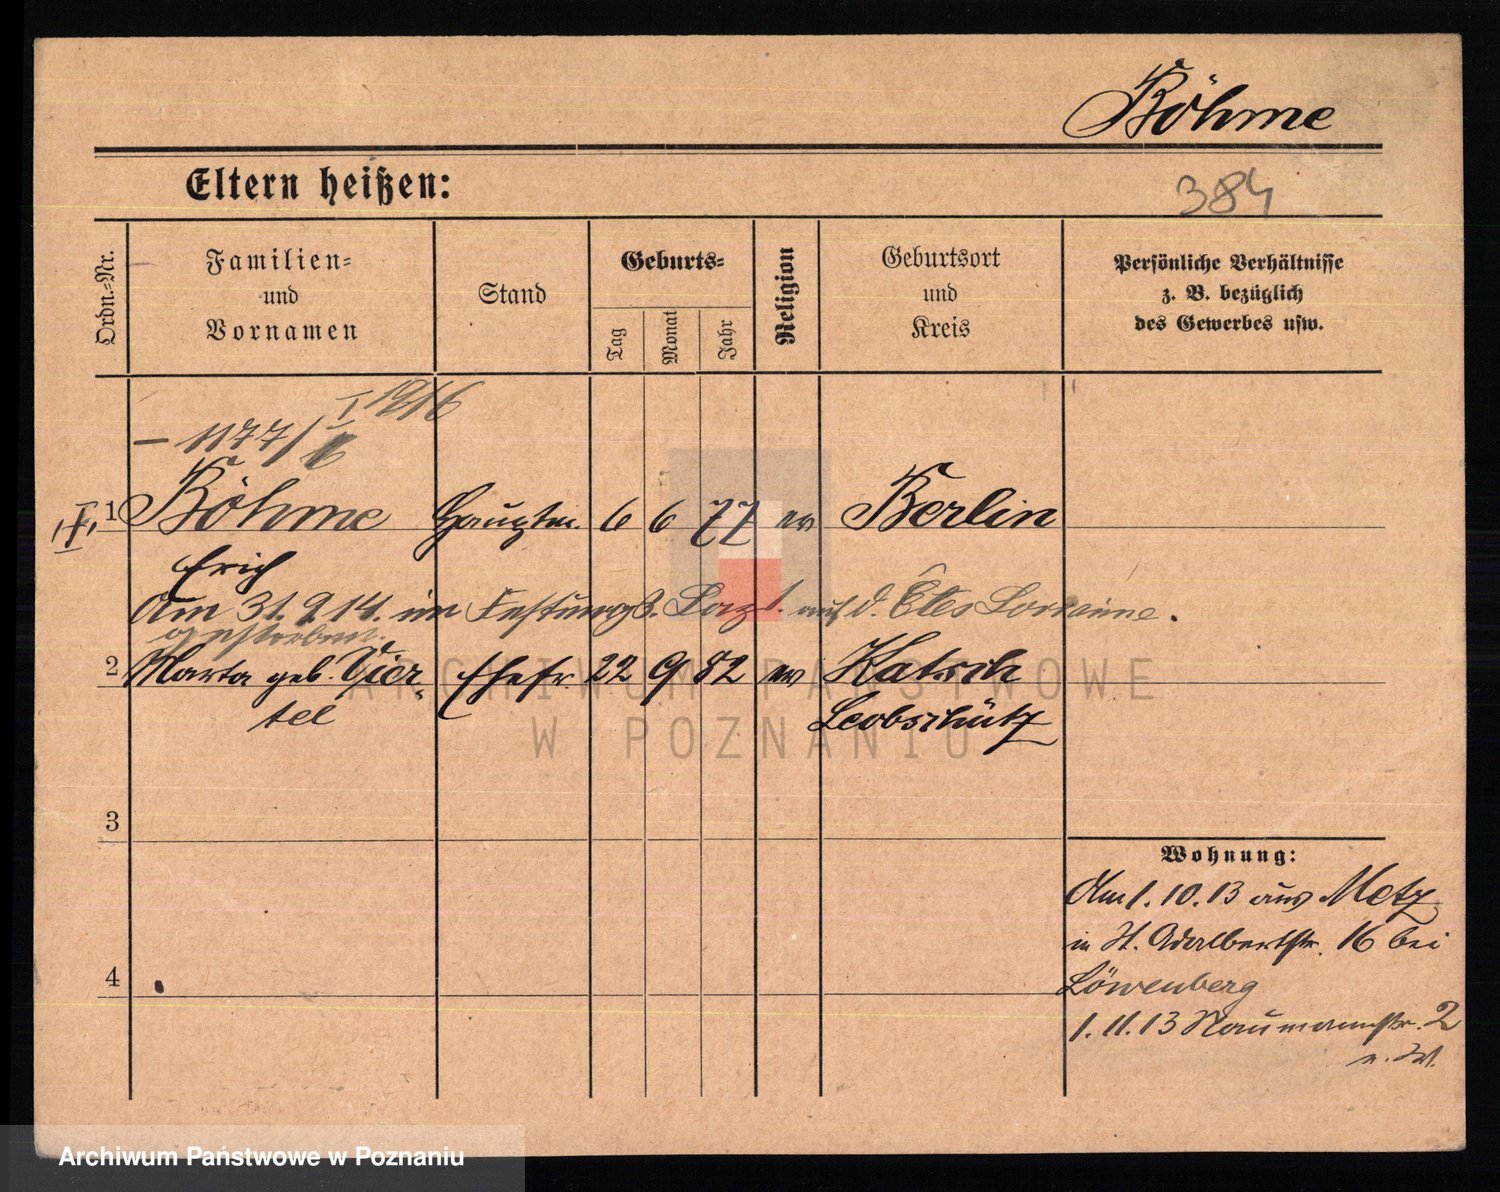 Böhme
Eltern heißen:
384
Ordn.-Nr.
Familien-
und
Vornamen
Stand
Geburts-
Tag
Monat
Jahr
Religion
Geburtsort
und
Kreis
Persönliche Verhältnisse
z. B. bezüglich
des Gewerbes usw.
1916
– 1177/
1 Böhme Hauptm. 6 6 77 ev Berlin
Erich
Am 31. 9 14. im Festungs. Lazt. auf d. Côtes Lorraine.
gestorben.
2 Marta geb. Vier- Ehefr. 22 9 82 ev Katsch
tel Leobschütz
3
4
Wohnung:
Am 1. 10. 13 aus Metz
in St. Adalbertstr. 16 bei
Löwenberg
1. 11. 13 Naumannstr. 2
ARCHIWUM PAŃSTWOWE
W POZNANIU
Archiwum Państwowe w Poznaniu